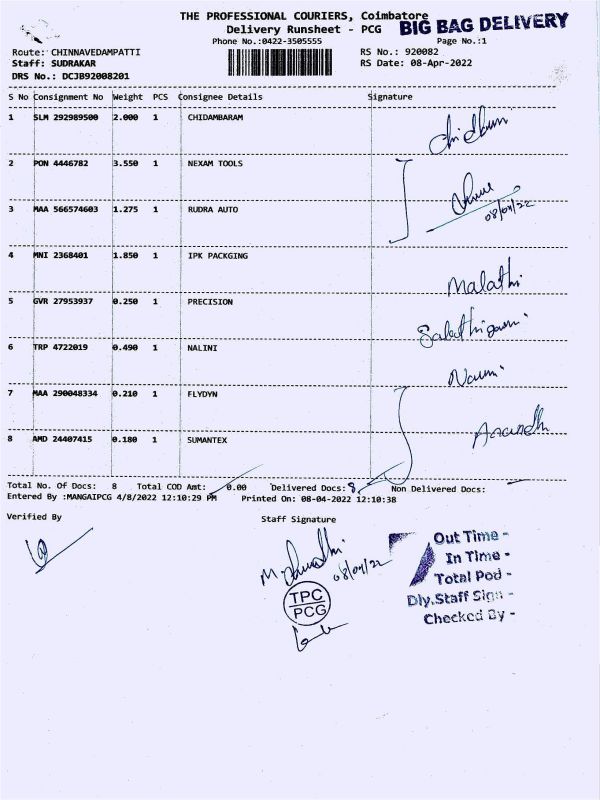 THE PROFESSIONAL COURIERS, Coimbatore
Delivery Runsheet - PCG
BIG BAG DELIVERY
Phone No.:0422-3505555
Page No.:1
Route: CHINNAVEDAMPATTI
RS No.: 920082
Staff: SUDRAKAR
RS Date: 08-Apr-2022
DRS No.: DCJB92008201
S No Consignment No Weight PCS Consignee Details Signature
1 SLM 292989500 2.000 1 CHIDAMBARAM
2 PON 4446782 3.550 1 NEXAM TOOLS
08/04/22
3 MAA 566574603 1.275 1 RUDRA AUTO
4 MNI 2368401 1.850 1 IPK PACKGING
Malathi
5 GVR 27953937 0.250 1 PRECISION
6 TRP 4722019 0.490 1 NALINI
7 MAA 290048334 0.210 1 FLYDYN
Anandh
8 AMD 24407415 0.180 1 SUMANTEX
Total No. Of Docs: 8 Total COD Amt: 0.00 Delivered Docs: 8 Non Delivered Docs: —
Entered By :MANGAIPCG 4/8/2022 12:10:29 PM Printed On: 08-04-2022 12:10:38
Verified By
Staff Signature
08/04/22
TPC
PCG
Out Time -
In Time -
Total Pod -
Dly.Staff Sign -
Checked By -